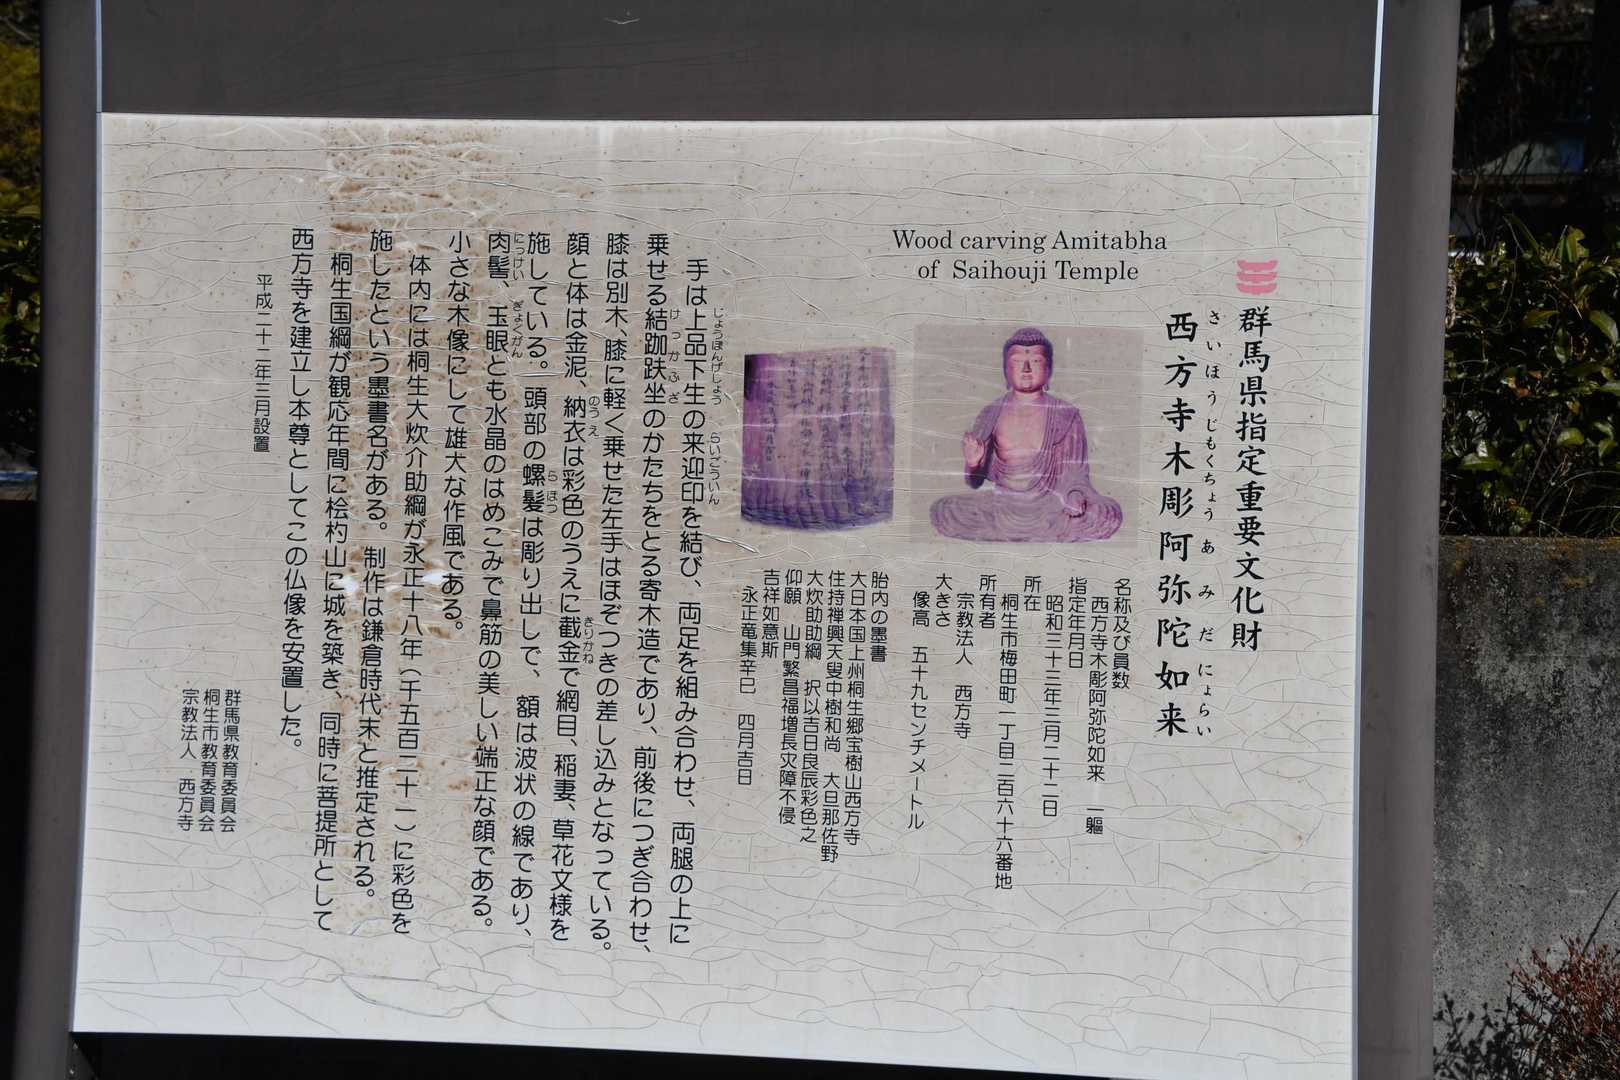 群馬県指定重要文化財
さいほうじもくちょうあみだにょらい
西方寺木彫阿弥陀如来
Wood carving Amitabha
of Saihouji Temple
名称及び員数
西方寺木彫阿弥陀如来 一軀
指定年月日
昭和三十三年三月二十二日
所在
桐生市梅田町一丁目二百六十六番地
所有者
宗教法人 西方寺
大きさ
像高 五十九センチメートル
胎内の墨書
大日本国上州桐生郷宝樹山西方寺
住持禅興天叟中樹和尚 大旦那佐野
大炊助助綱 択以吉日良辰彩色之
仰願 山門繁昌福増長灾障不侵
吉祥如意斯
永正竜集辛巳 四月吉日
じょうぼんげしょう らいごういん
手は上品下生の来迎印を結び、両足を組み合わせ、両腿の上に
けっかふざ
乗せる結跏趺坐のかたちをとる寄木造であり、前後につぎ合わせ、
膝は別木、膝に軽く乗せた左手はほぞつきの差し込みとなっている。
のうえ きりかね
顔と体は金泥、納衣は彩色のうえに截金で網目、稲妻、草花文様を
らほつ
施している。頭部の螺髪は彫り出しで、額は波状の線であり、
にっけい ぎょくがん
肉髻、玉眼とも水晶のはめこみで鼻筋の美しい端正な顔である。
小さな木像にして雄大な作風である。
体内には桐生大炊介助綱が永正十八年（千五百二十一）に彩色を
施したという墨書名がある。制作は鎌倉時代末と推定される。
桐生国綱が観応年間に桧杓山に城を築き、同時に菩提所として
西方寺を建立し本尊としてこの仏像を安置した。
平成二十二年三月設置
群馬県教育委員会
桐生市教育委員会
宗教法人 西方寺